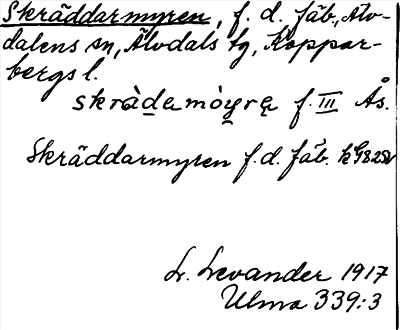 Skräddarmyren, f. d. fäb., Älv-
dalens sn, Älvdals tg, Koppar-
bergs l.
skrädamöyrę f. III Ås.
Skräddarmyren f.d. fäb.
L. Levander 1917
Ulma 339:3